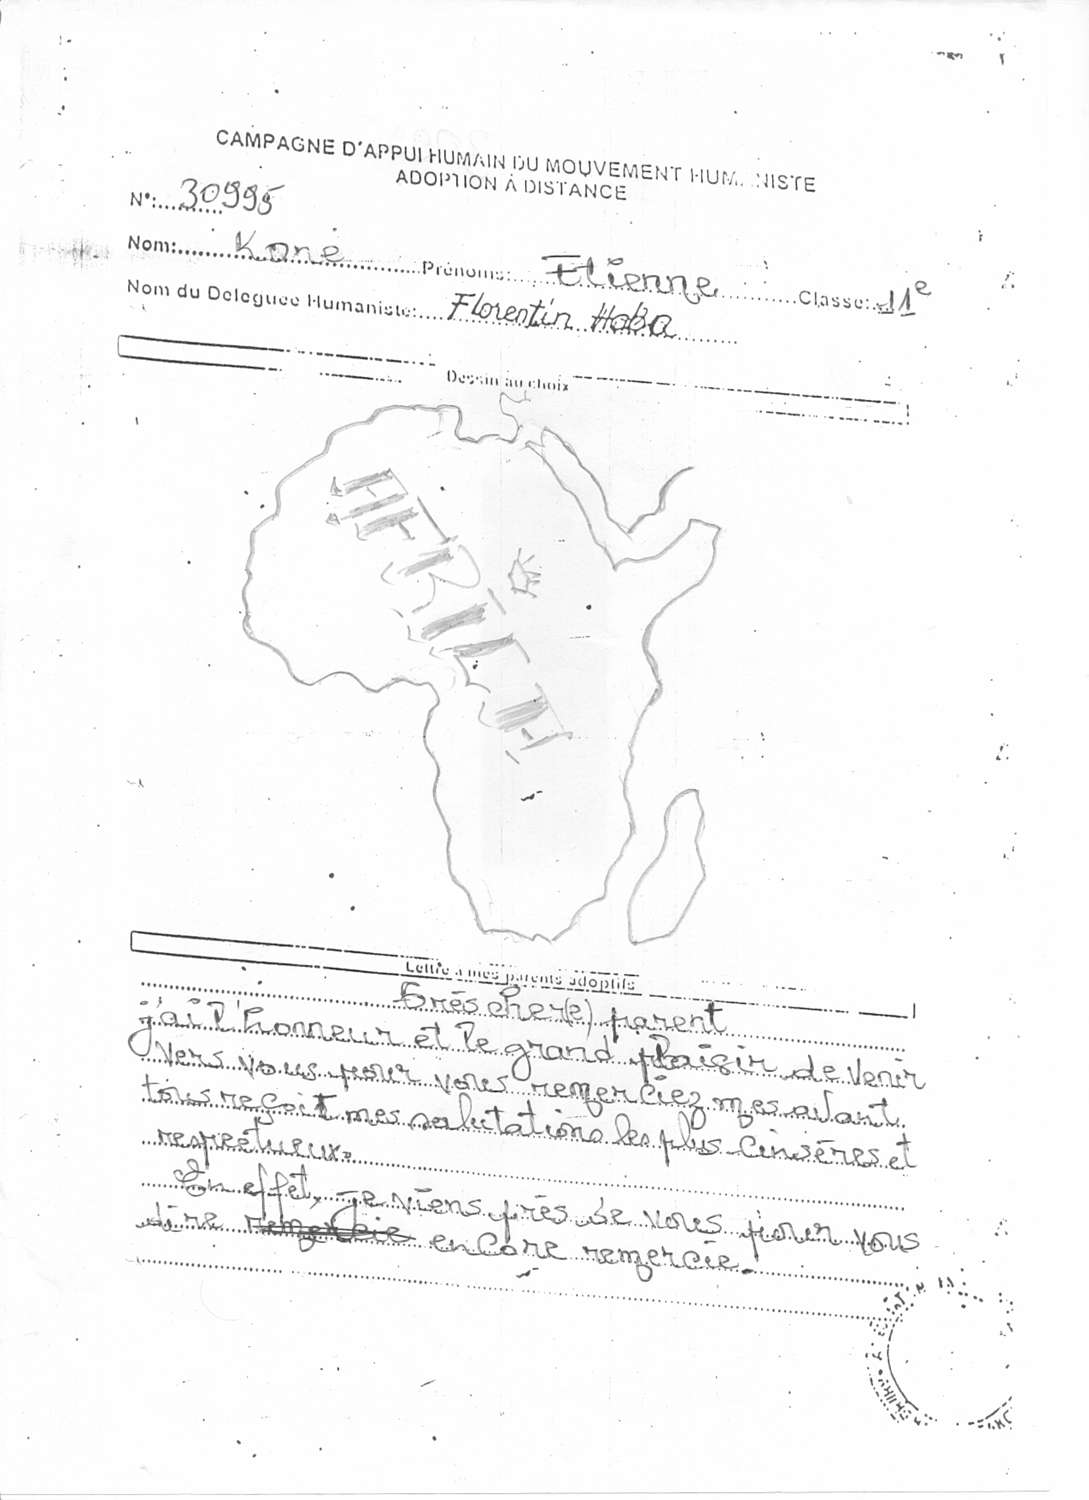 CAMPAGNE D'APPUI HUMAIN DU MOUVEMENT HUMANISTE
ADOPTION À DISTANCE
N°:......... 30995
Nom:...... Kone ......Prénoms:..... Etienne ..........Classe: 11e
Nom du Deleguee Humaniste:.... Florentin Haba ........
Dessin au choix
AFRICA
Lettre a mes parents adoptifs
très cher(e) parent
j'ai l'honneur et le grand plaisir de venir
vers vous pour vous remerciez mes avant
tous reçoit mes salutations les plus cinsères et
respectueux.
En effet, je viens près de vous pour vous
dire remercie encore remercie.